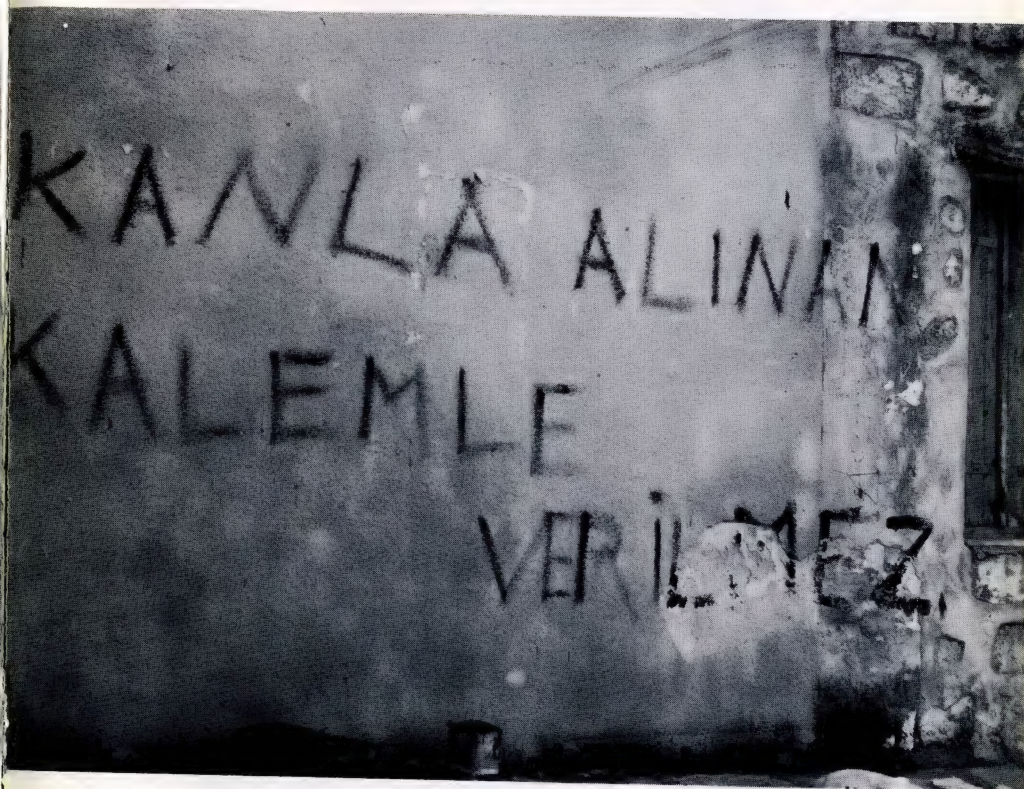 KANLA ALINAN
KALEMLE
VERİLMEZ.